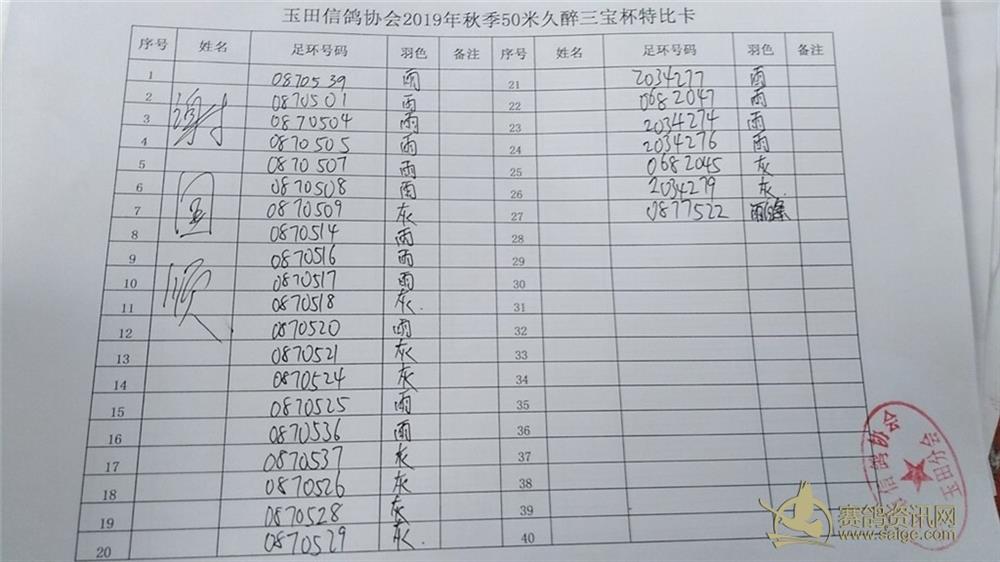 玉田信鸽协会2019年秋季50米久醉三宝杯特比卡
序号 姓名 足环号码 羽色 备注 序号 姓名 足环号码 羽色 备注
1 0870539 雨 21 2034277 雨
2 0870501 雨 22 0682047 雨
3 0870504 雨 23 2034274 雨
4 0870505 雨 24 2034276 雨
5 0870507 雨 25 0682045 灰
6 0870508 雨 26 2034279 灰
7 0870509 灰 27 0877522
8 0870514 雨 28
9 0870516 雨 29
10 0870517 雨 30
11 0870518 灰 31
12 0870520 雨 32
13 0870521 灰 33
14 0870524 灰 34
15 0870525 雨 35
16 0870536 雨 36
17 0870537 灰 37
18 0870526 灰 38
19 0870528 灰 39
20 0870529 灰 40
国
顺
信鸽协会
玉田分会
赛鸽资讯网
www.saige.com